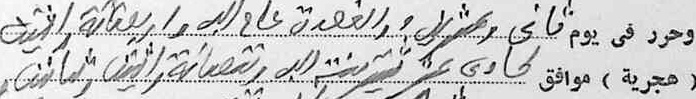 وحرر فى يوم ثانى وعشرين ذو القعدة عام الف واربعمائة واثنين
( هجرية ) موافق حادى عشر شتنبر سنة الف وتسعمائة واثنين وثمانين